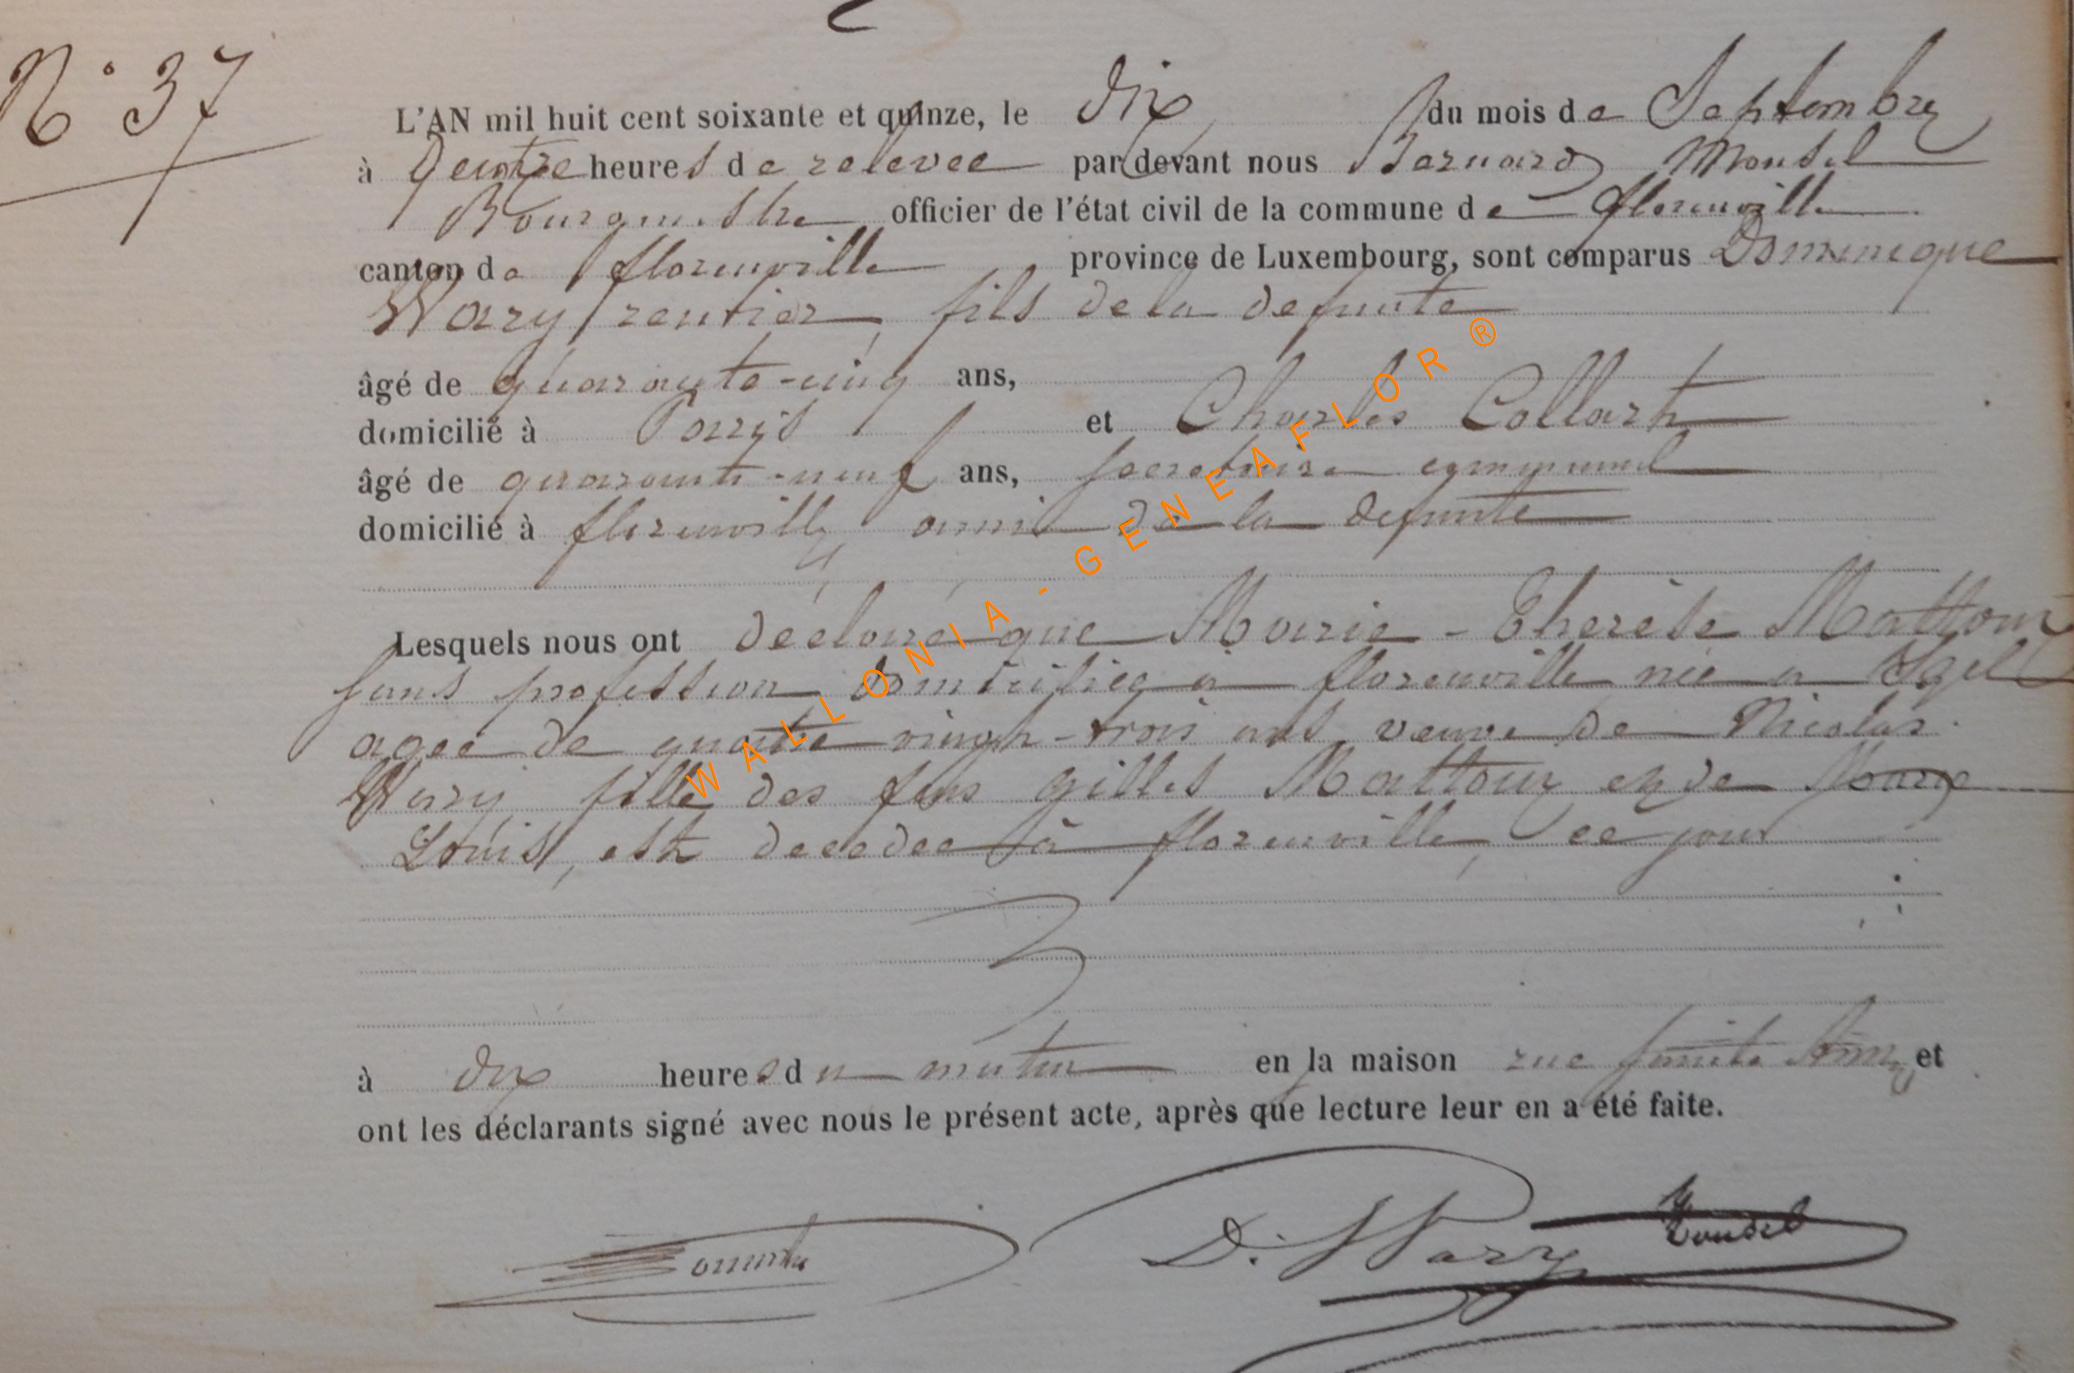 N° 37
L'AN mil huit cent soixante et quinze, le dix du mois de Septembre
à quatre heures de relevée par devant nous Bernard Monsel
Bourgmestre officier de l'état civil de la commune de florenville
canton de florenville province de Luxembourg, sont comparus Dominique
Wary rentier, fils de la defunte
âgé de quarante-cinq ans,
domicilié à Paris et Charles Collart
âgé de quarante-neuf ans, secretaire communal
domicilié à florenville ami de la defunte
Lesquels nous ont déclaré que Marie-Therèse
sans profession, domiciliée à florenville née a
agée de quatre vingt-trois ans veuve de Nicolas
Wary fille des feus Gilles et de
Louis, est decedee à florenville, ce jour
à dix heures du matin en la maison rue et
ont les déclarants signé avec nous le présent acte, après que lecture leur en a été faite.
D. Wary Monsel
WALLONIA-GENEAFLOR®